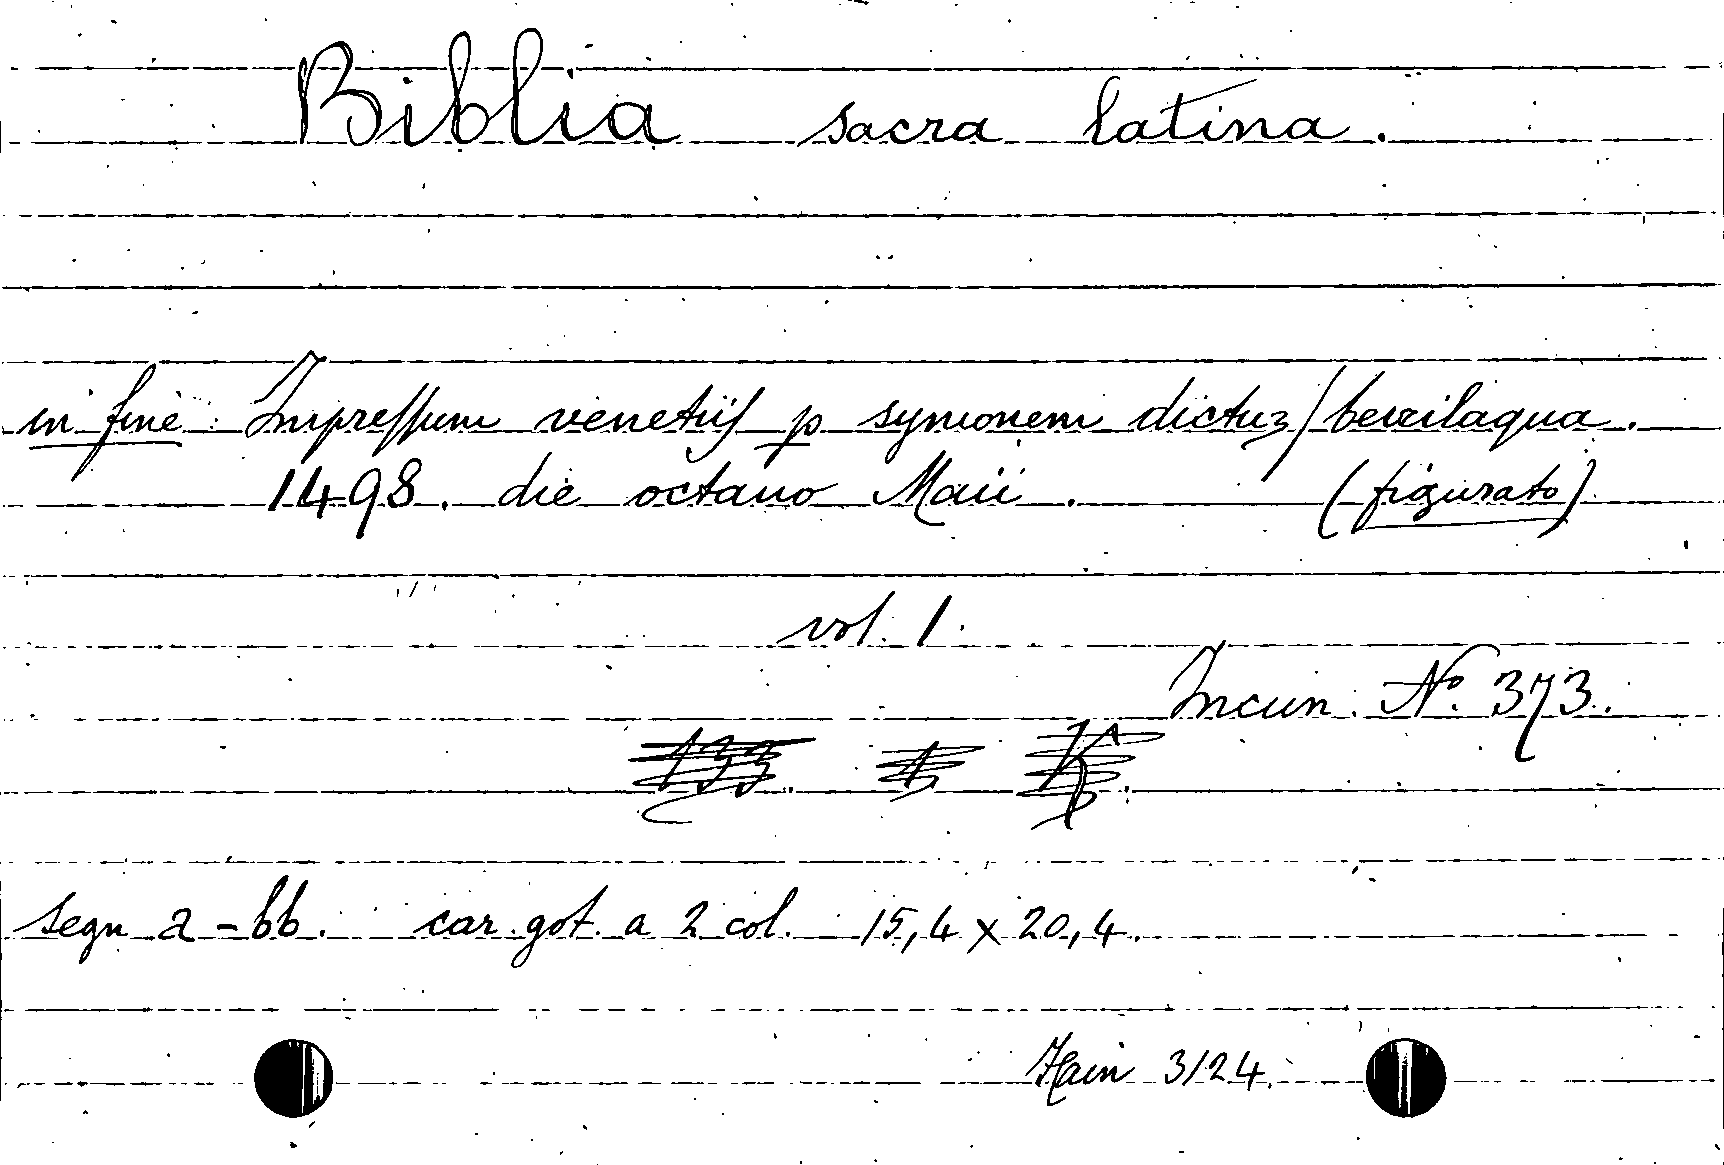 Biblia sacra latina.
in fine: Impreſſum venetiiſ p symonem dictuz / beveilaqua.
1498. die octauo Maii. (figurato)
vol. 1.
Incun. No. 373.
133. A
segn a - bb. car. got. a 2 col. 15,4 x 20,4.
Hain 3124.